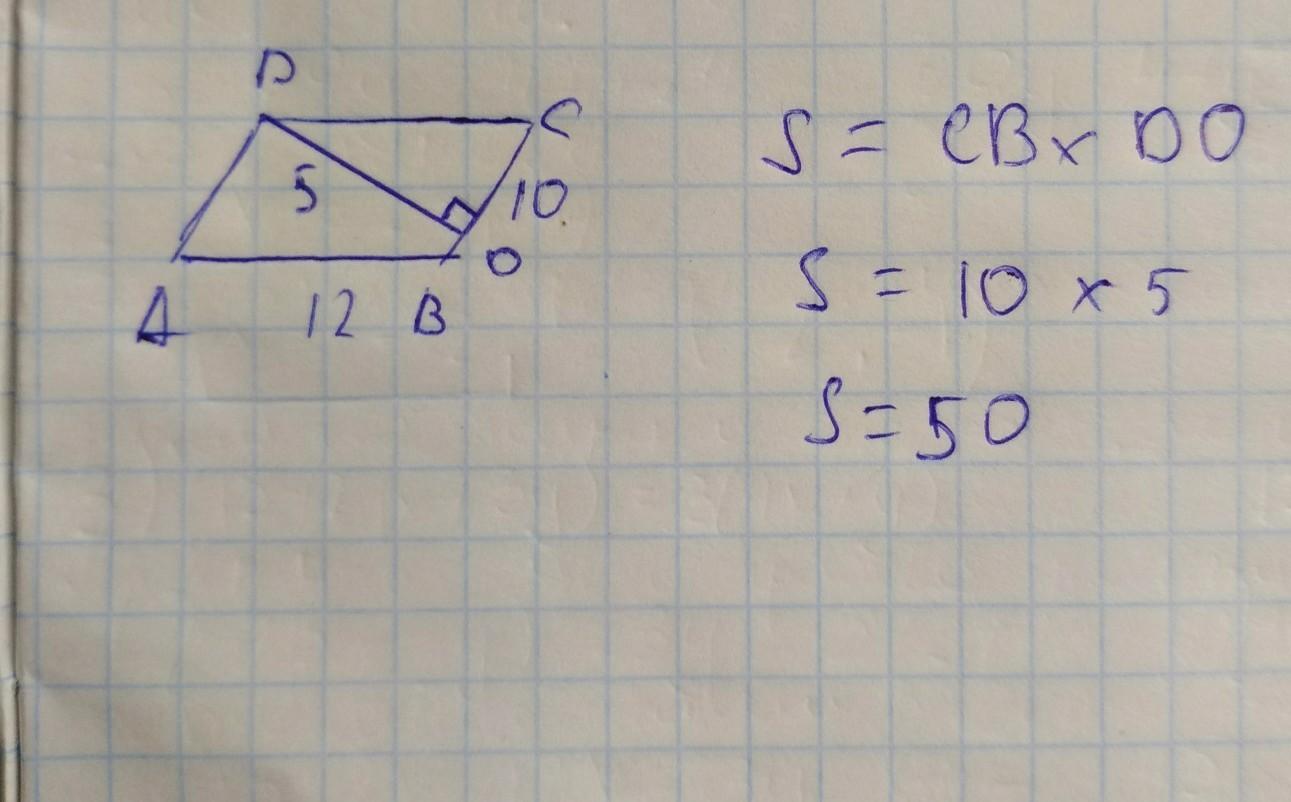 D
C
5
10
O
A
12
B
S = CB x DO
S = 10 x 5
S = 50